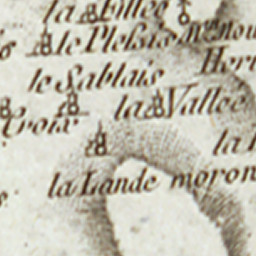 la Fillee
le Plessis Menou
Her
le Sablais
la Vallee
Croix
la
la Lande moron